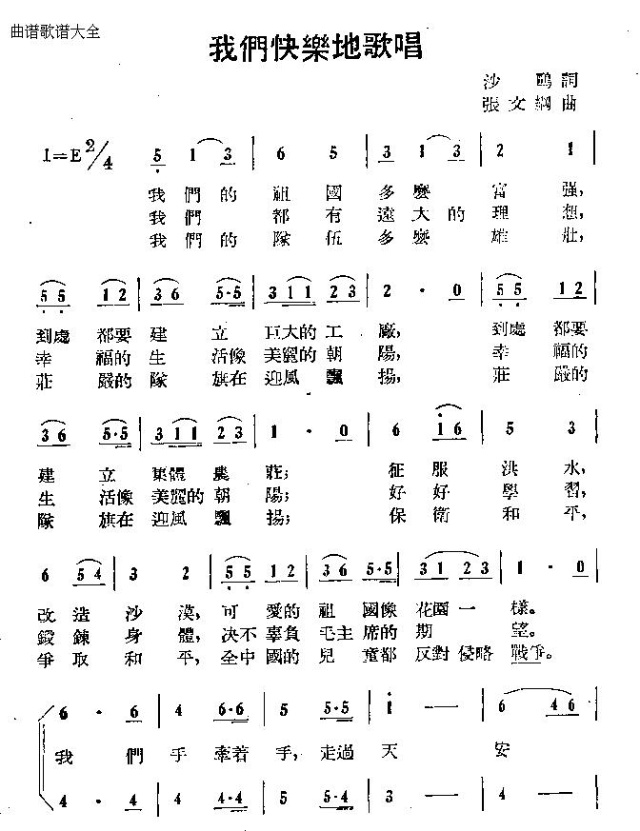 曲谱歌谱大全
我們快樂地歌唱
沙鷗 詞
張文綱 曲
1=E 2/4 5 1 3 | 6 5 | 3 1 3 | 2 1 |
我們的 祖國多麼 富强,
我們 都有遠大的理想,
我們的隊伍多麼 雄壯,
5 5 1 2 | 3 6 5·5 | 3 1 1 2 3 | 2 · 0 | 5 5 1 2 |
到處 都要 建 立 巨大的工 廠, 到處 都要
幸 福的生 活像 美麗的朝 陽, 幸 福的
莊 嚴的隊 旗在 迎風 飄 揚, 莊 嚴的
3 6 5·5 | 3 1 1 2 3 | 1 · 0 | 6 1 6 | 5 3 |
建 立 集體 農 莊; 征 服 洪 水,
生 活像 美麗的朝 陽; 好 好 學 習,
隊 旗在 迎風 飄 揚; 保 衛 和 平,
6 5 4 | 3 2 | 5 5 1 2 | 3 6 5·5 | 3 1 2 3 | 1 · 0
改 造 沙 漠, 可 愛的 祖 國像 花園一 樣。
鍛 鍊 身 體, 决不 辜負 毛主 席的 期 望。
爭 取 和 平, 全中 國的 兒 童都 反對 侵略 戰爭。
6 · 6 | 4 6·6 | 5 5·5 | 1 — | 6 4 6
我 們 手 牽着 手, 走過 天 安
4 · 4 | 4 4·4 | 5 5·4 | 3 — | 4 · 4